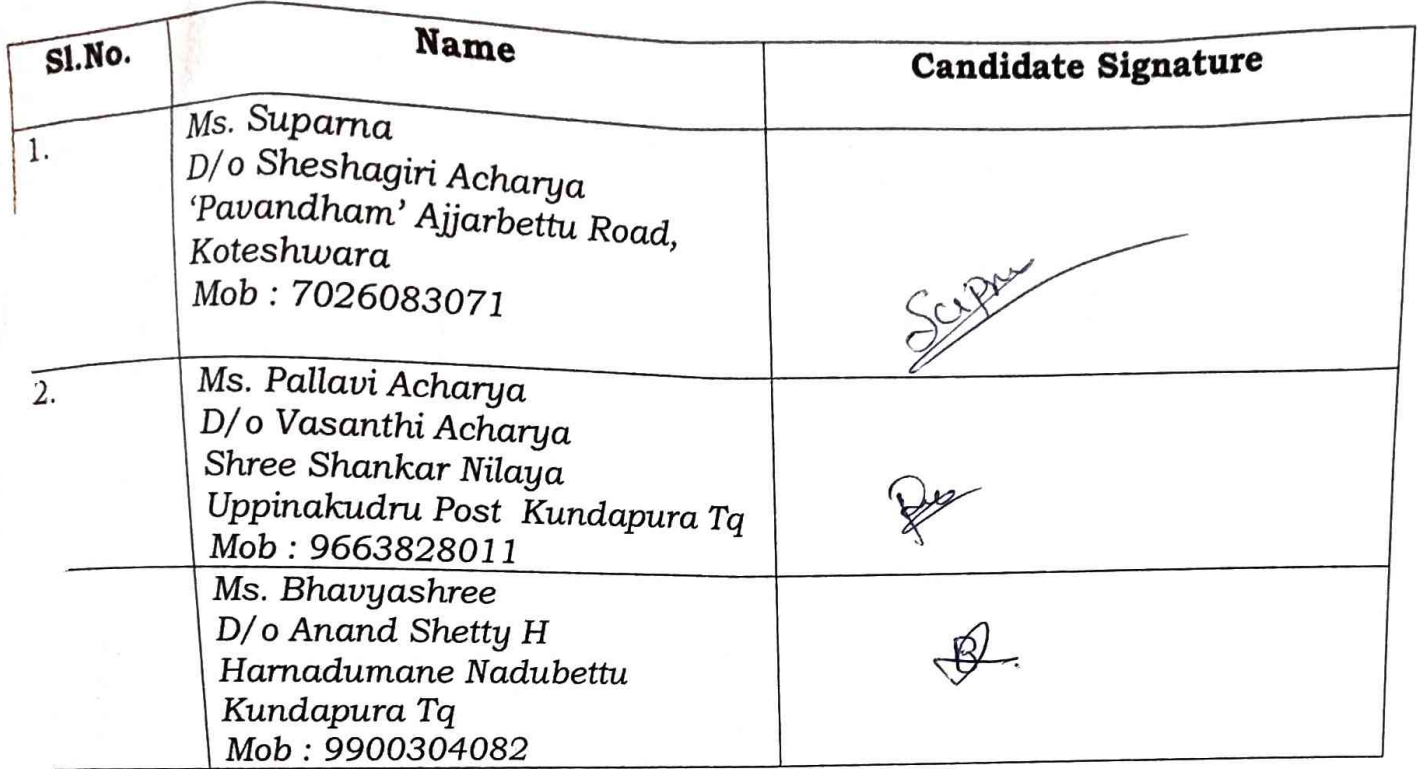 Sl.No. Name Candidate Signature
1. Ms. Suparna
D/o Sheshagiri Acharya
‘Pavandham’ Ajjarbettu Road,
Koteshwara
Mob : 7026083071
2. Ms. Pallavi Acharya
D/o Vasanthi Acharya
Shree Shankar Nilaya
Uppinakudru Post Kundapura Tq
Mob : 9663828011
Ms. Bhavyashree
D/o Anand Shetty H
Harnadumane Nadubettu
Kundapura Tq
Mob : 9900304082